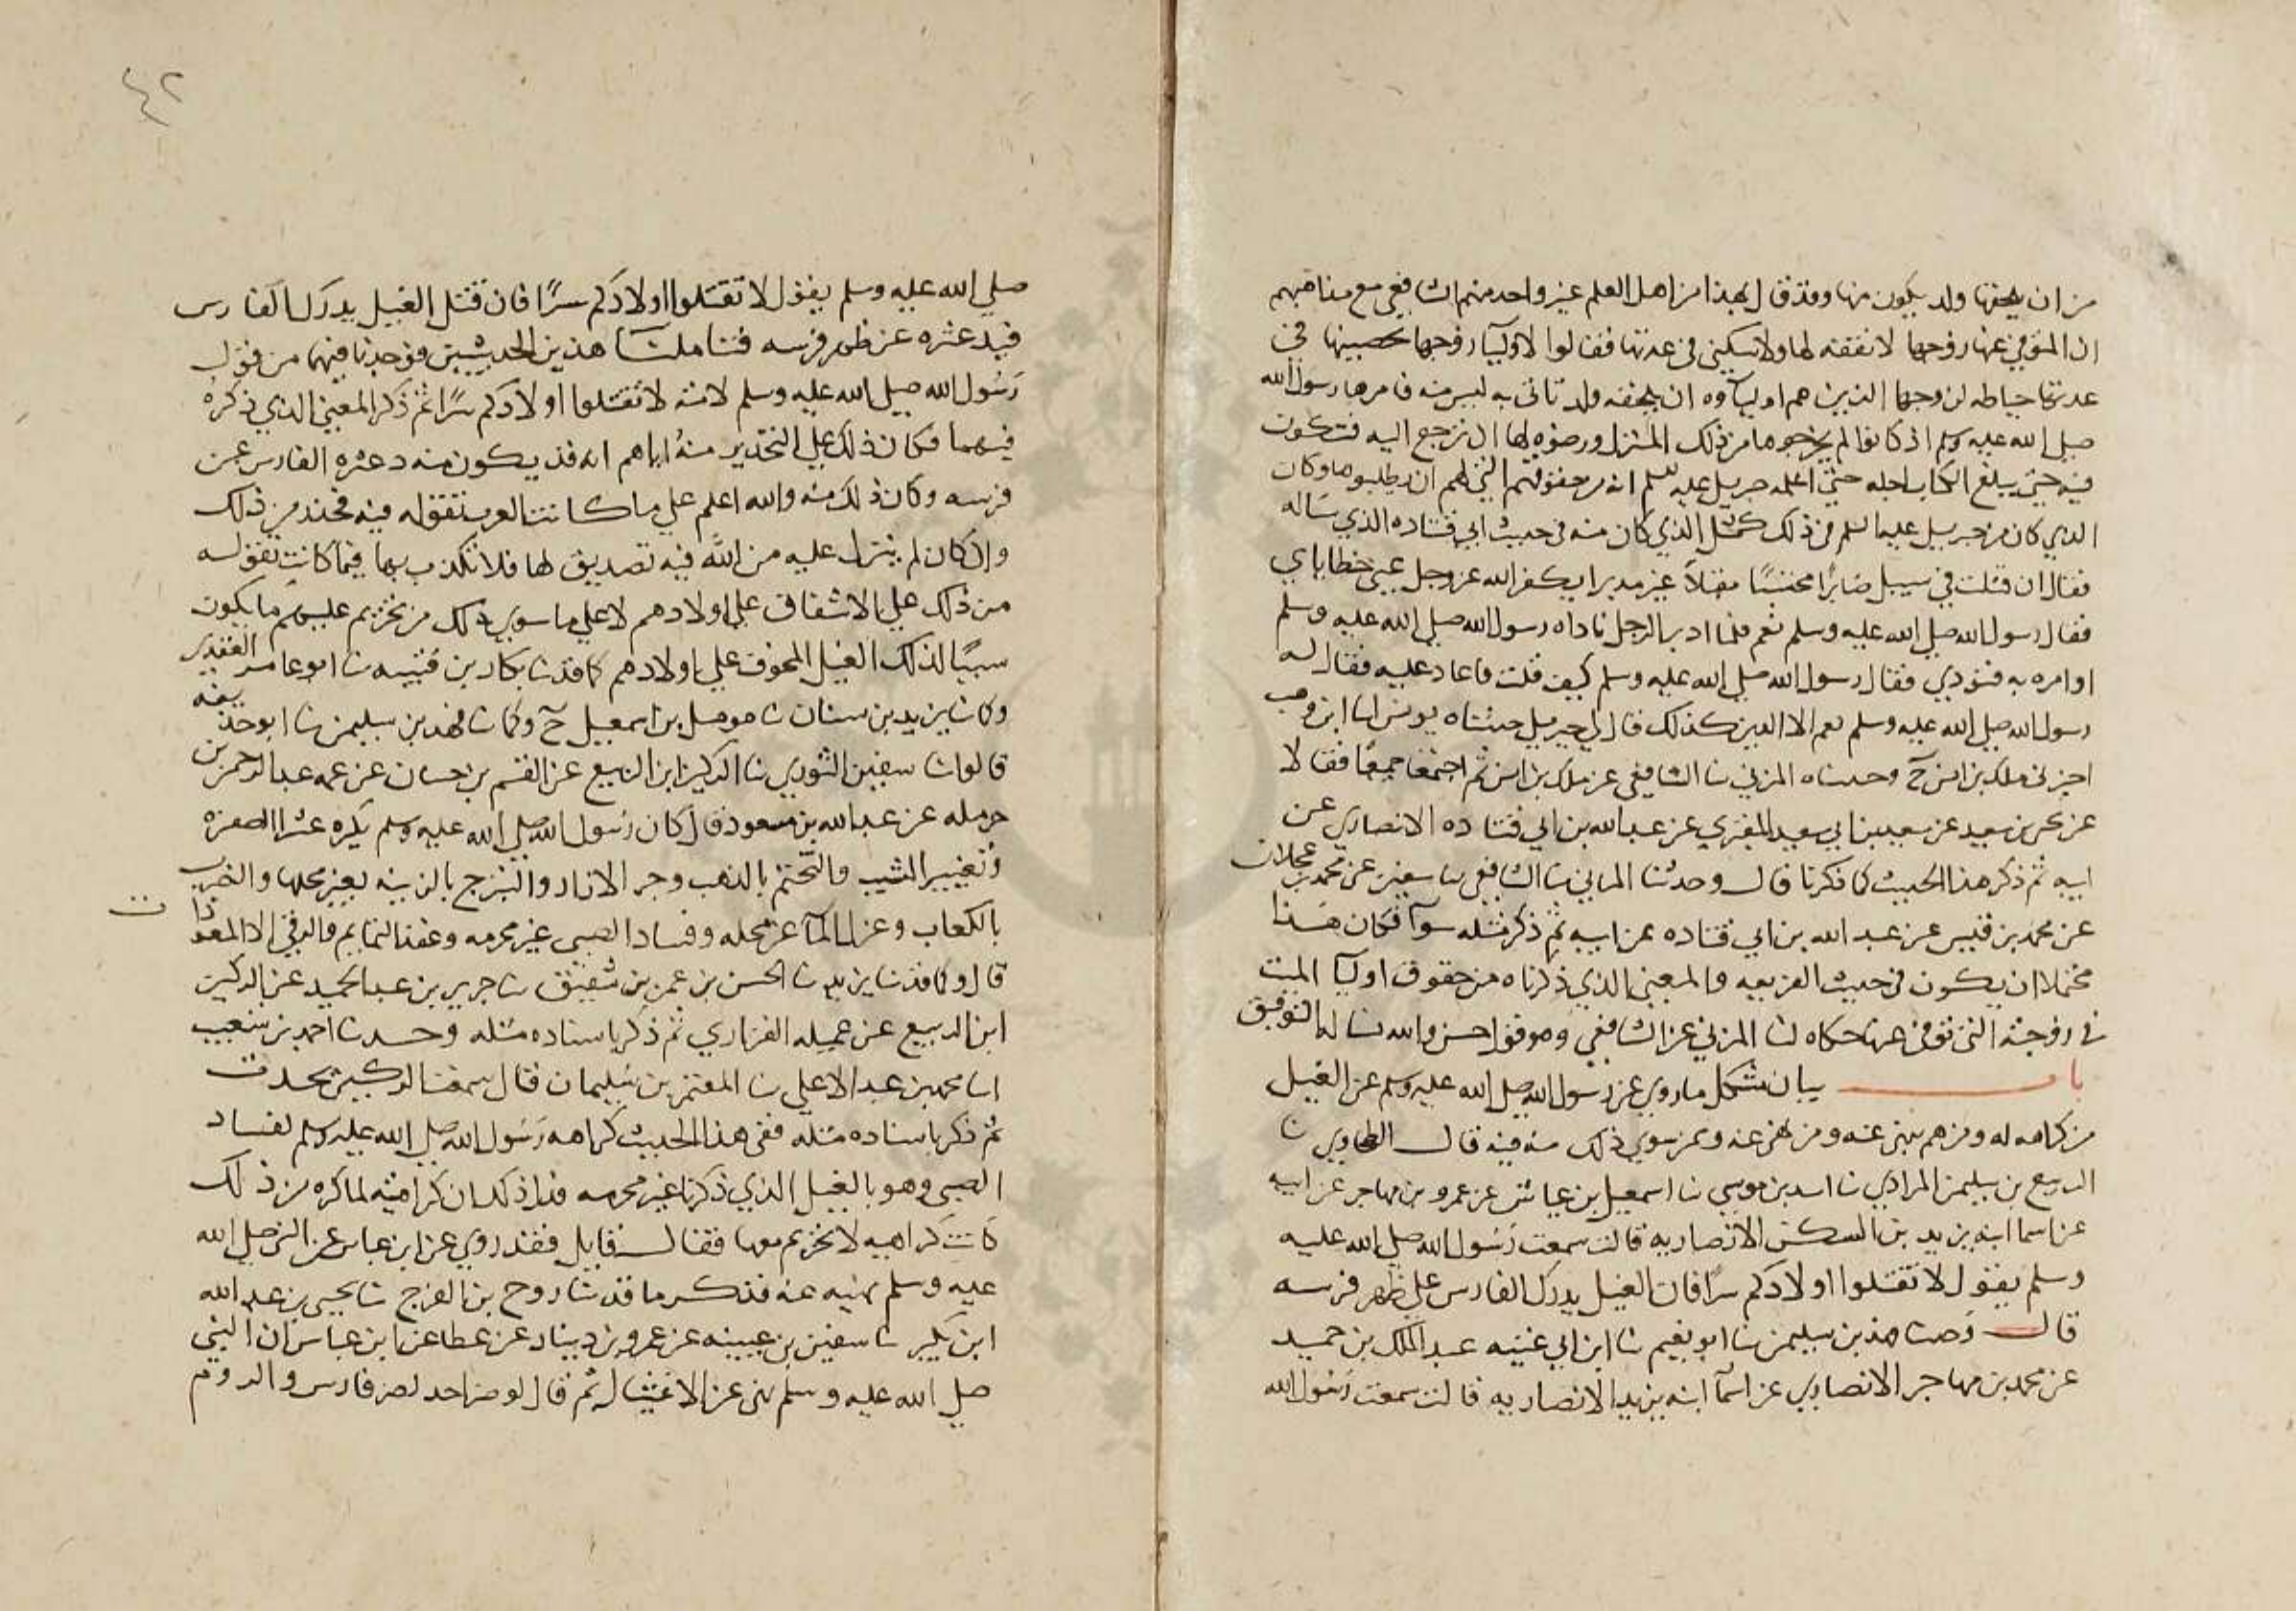 من ان يلحقها ولد يكون منها وقد قال بهذا من اهل العلم غير واحد منهم الشافعي مع مذاهبهم
ان المتوفى عنها زوجها لا نفقة لها ولا سكنى في عدتها فقالوا لاوليا زوجها تحصينها في
عدتها حياطه لزوجها الذين هم اولياوه ان يلحقه ولد تاتى به ليس منه فامرها رسول الله
صلى الله عليه وسلم اذ كانوا لم يخرجوها من ذلك المنزل ورضوه لها ان ترجع اليه فتكون
فيه حتى يبلغ الكتاب اجله حتى اعلمه جبريل عليه السلم انه من حقوقهم التي لهم ان يطلبوها وكان
الذي كان من جبريل عليه السلم في ذلك كمثل الذي كان منه في حديث ابي قتاده الذي ساله
فقال ان قتلت في سبيل صابرا محتسبا مقبلا غير مدبر ايكفر الله عز وجل عني خطاياي
فقال رسول الله صلى الله عليه وسلم نعم فلما ادبر الرجل ناداه رسول الله صلى الله عليه وسلم
او امر به فنودي فقال رسول الله صلى الله عليه وسلم كيف قلت فاعاد عليه فقال له
رسول الله صلى الله عليه وسلم نعم الا الدين كذلك قال لي جبريل حدثناه يونس انا ابن وهب
اخبرني ملك بن انس ح وحدثناه المزني نا الشافعي عن ملك بن انس ثم اجتمعا جميعا فقالا
عن يحيى بن سعيد عن سعيد بن ابي سعيد المقبري عن عبد الله بن ابي قتاده الانصاري عن
ابيه ثم ذكر هذا الحديث كما ذكرنا قال وحدثنا المزني نا الشافعي نا سفين عن محمد بن عجلان
عن محمد بن قيس عن عبد الله بن ابي قتاده عن ابيه ثم ذكر مثله سوآ فكان هذا
محتملا ان يكون في حديث الفريعه والمعنى الذي ذكرناه من حقوق اوليا الميت
في زوجته التي توفى عنها حكاه لنا المزني عن الشافعي وهو قول حسن والله نساله التوفيق
باب بيان مشكل ما روي عن رسول الله صلى الله عليه وسلم عن الغيل
من كراهه له ومن هم بنهي عنه ومن نهي عنه ومن سوي ذلك منه فيه قال الطحاوي نا
الربيع بن سليمن المرادي نا اسد بن موسى نا اسمعيل بن عياش عن عمرو بن مهاجر عن ابيه
عن اسما ابنه يزيد بن السكن الانصاريه قالت سمعت رسول الله صلى الله عليه
وسلم يقول لا تقتلوا اولادكم سرا فان الغيل يدرك الفارس على ظهر فرسه
قال وحدثنا فهد بن سليمن نا ابو نعيم نا ابن ابي غنيه عبد الملك بن حميد
عن محمد بن مهاجر الانصاري عن اسمآ ابنه يزيد الانصاريه قالت سمعت رسول الله
٤٢
صلي الله عليه وسلم يقول لا تقتلوا اولادكم سرًا فان قتل الغيل يدرك الفارس
فيدعثره عن ظهر فرسه فتاملنا هذين الحديثين فوجدنا فيهما من قول
رسول الله صلى الله عليه وسلم لامته لا تقتلوا اولادكم سرا ثم ذكر المعنى الذي ذكره
فيهما فكان ذلك على التحذير منه اياهم انه قد يكون منه دعثره الفارس عن
فرسه وكان ذلك منه والله اعلم على ما كانت العرب تقوله فيه فحذر من ذلك
وان كان لم ينزل عليه من الله فيه تصديق لها فلا تكذيب بها فيما كانت تقوله
من ذلك على الاشفاق على اولادهم لا على ما سوي ذلك من تحريم عليهم ما يكون
سببا لذلك الغيل المخوف على اولادهم كما قد نا بكار بن قتيبه نا ابو عامر العقدي
وكما نا يزيد بن سنان نا مومل بن اسمعيل ح وكما نا فهد بن سليمن نا ابو حذيفه
قالوا نا سفين الثوري نا الركين ابن الربيع عن القسم بن حسان عن عمه عبد الرحمن بن
حرمله عن عبد الله بن مسعود قال كان رسول الله صلى الله عليه وسلم يكره عشرا الصفرة
وتغيير المشيب والتختم بالذهب وجر الازار والتبرج بالزينه بغير محلها والضرب
بالكعاب وعزل المآ عن محله وفساد الصبي غير محرمه وعقد التمايم والرقي الا المعوذات
قال وكما قد نا يزيد نا الحسن بن عمر بن شقيق نا جرير بن عبد الحميد عن الركين
ابن الربيع عن عميله الفزاري ثم ذكر باسناده مثله وحدثنا احمد بن شعيب
انا محمد بن عبد الاعلى نا المعتمر بن سليمان قال سمعت الركين يحدث
ثم ذكر باسناده مثله ففي هذا الحديث كراهه رسول الله صلى الله عليه وسلم لفساد
الصبي وهو بالغيل الذي ذكرنا غير محرمه فدل ذلك ان كراهيته لما كره من ذلك
كانت كراهيه لا تحريم معها فقال قايل فقد روي عن ابن عباس عن النبي صلى الله
عليه وسلم نهيه عنه فذكر ما قد نا روح بن الفرج نا يحيى بن عبد الله
ابن بكير نا سفين بن عيينه عن عمرو بن دينار عن عطا عن ابن عباس ان النبي
صلى الله عليه وسلم نهى عن الاغتيال ثم قال لو ضر احد لضر فارس والروم